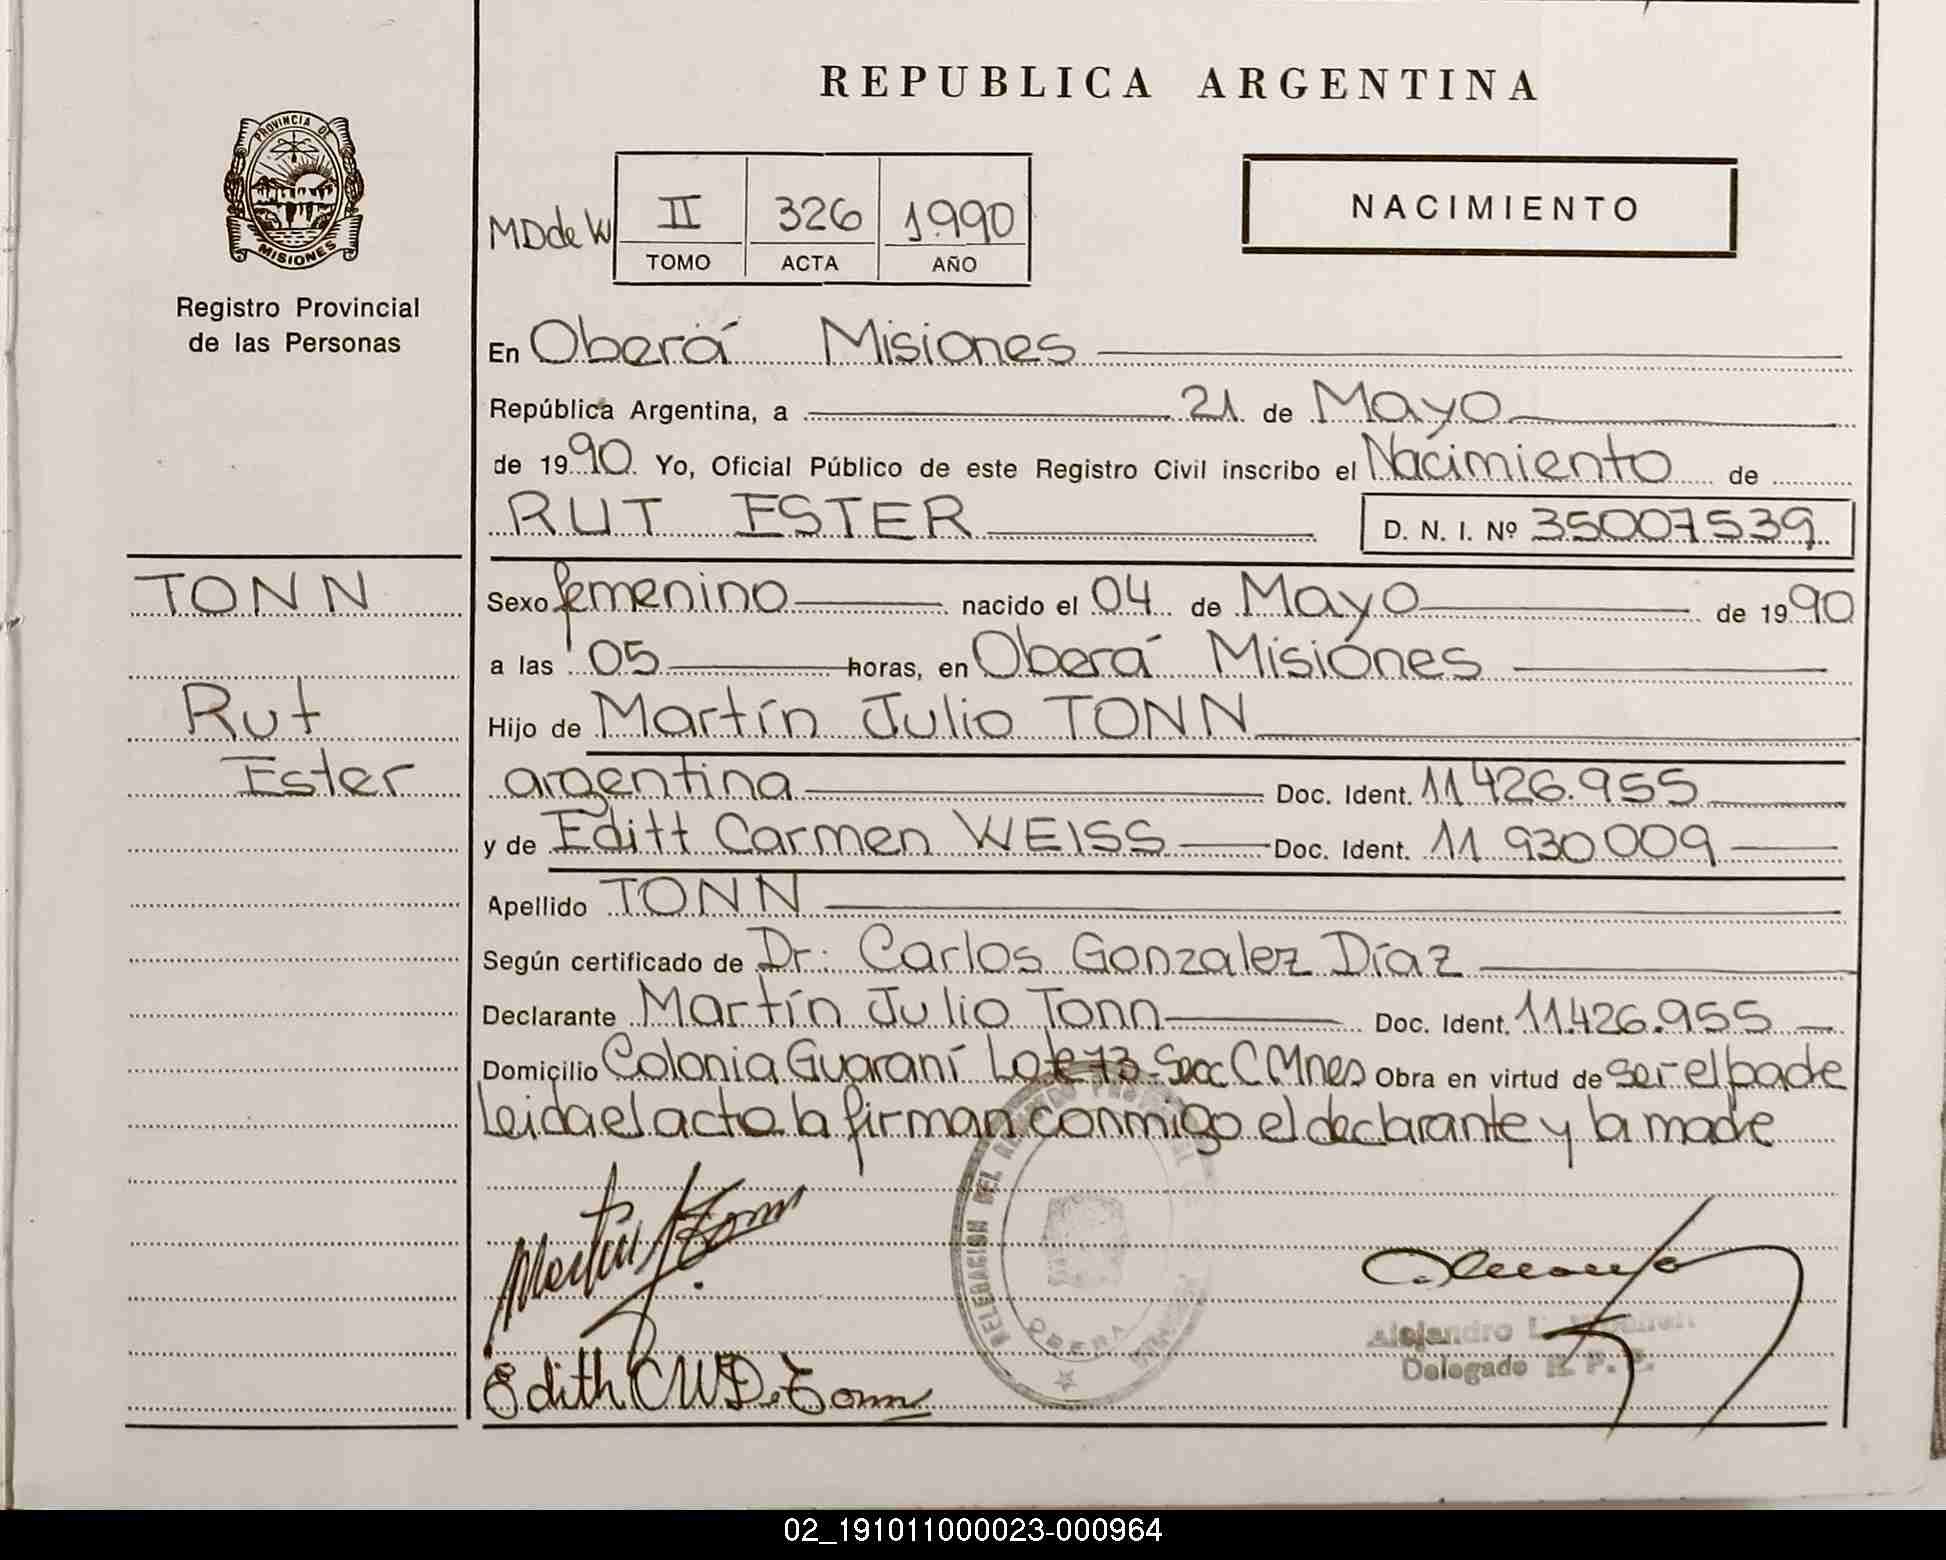 REPUBLICA ARGENTINA
PROVINCIA DE
MISIONES
Registro Provincial
de las Personas
MDdeW
II 326 1990
TOMO ACTA AÑO
NACIMIENTO
En Oberá Misiones
República Argentina, a 21 de Mayo
de 1990. Yo, Oficial Público de este Registro Civil inscribo el Nacimiento de
RUT ESTER D. N. I. Nº 35007539
TONN
Rut
Ester
Sexo femenino nacido el 04 de Mayo de 1990
a las 05 horas, en Oberá Misiones
Hijo de Martín Julio TONN
argentina Doc. Ident. 11426.955
y de Editt Carmen WEISS Doc. Ident. 11 930 009
Apellido TONN
Según certificado de Dr. Carlos Gonzalez Díaz
Declarante Martín Julio Tonn Doc. Ident. 11.426.955
Domicilio Colonia Guaraní Lote 73 Secc C Mnes Obra en virtud de ser el padre
Leida el acta la firman conmigo el declarante y la madre
Martin J Tonn
DELEGACION DEL
OBERA
Alejandro
Delegado R. P.
Edith C W De Tonn
02_191011000023-000964